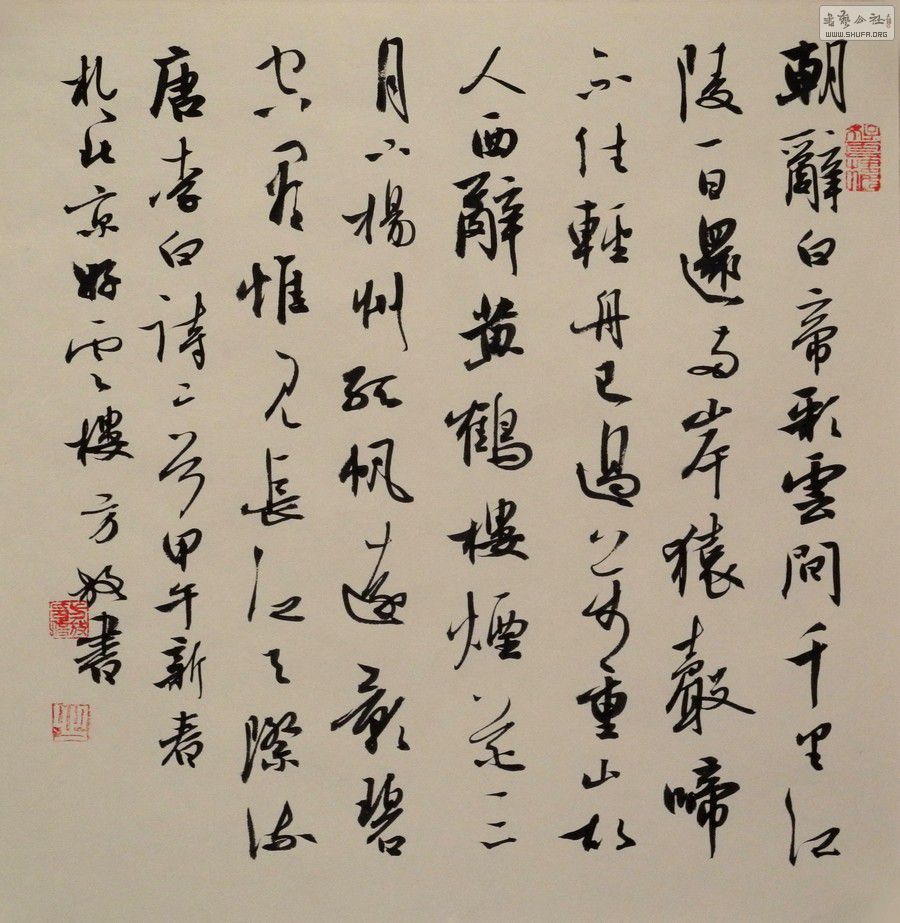 朝辭白帝彩雲間千里江
陵一日還兩岸猿聲啼
不住輕舟已過萬重山故
人西辭黃鶴樓煙花三
月下楊州孤帆遠影碧
空盡惟見長江天際流
唐李白詩二首甲午新春
於北京好雲樓方放書
書藝公社
WWW.SHUFA.ORG